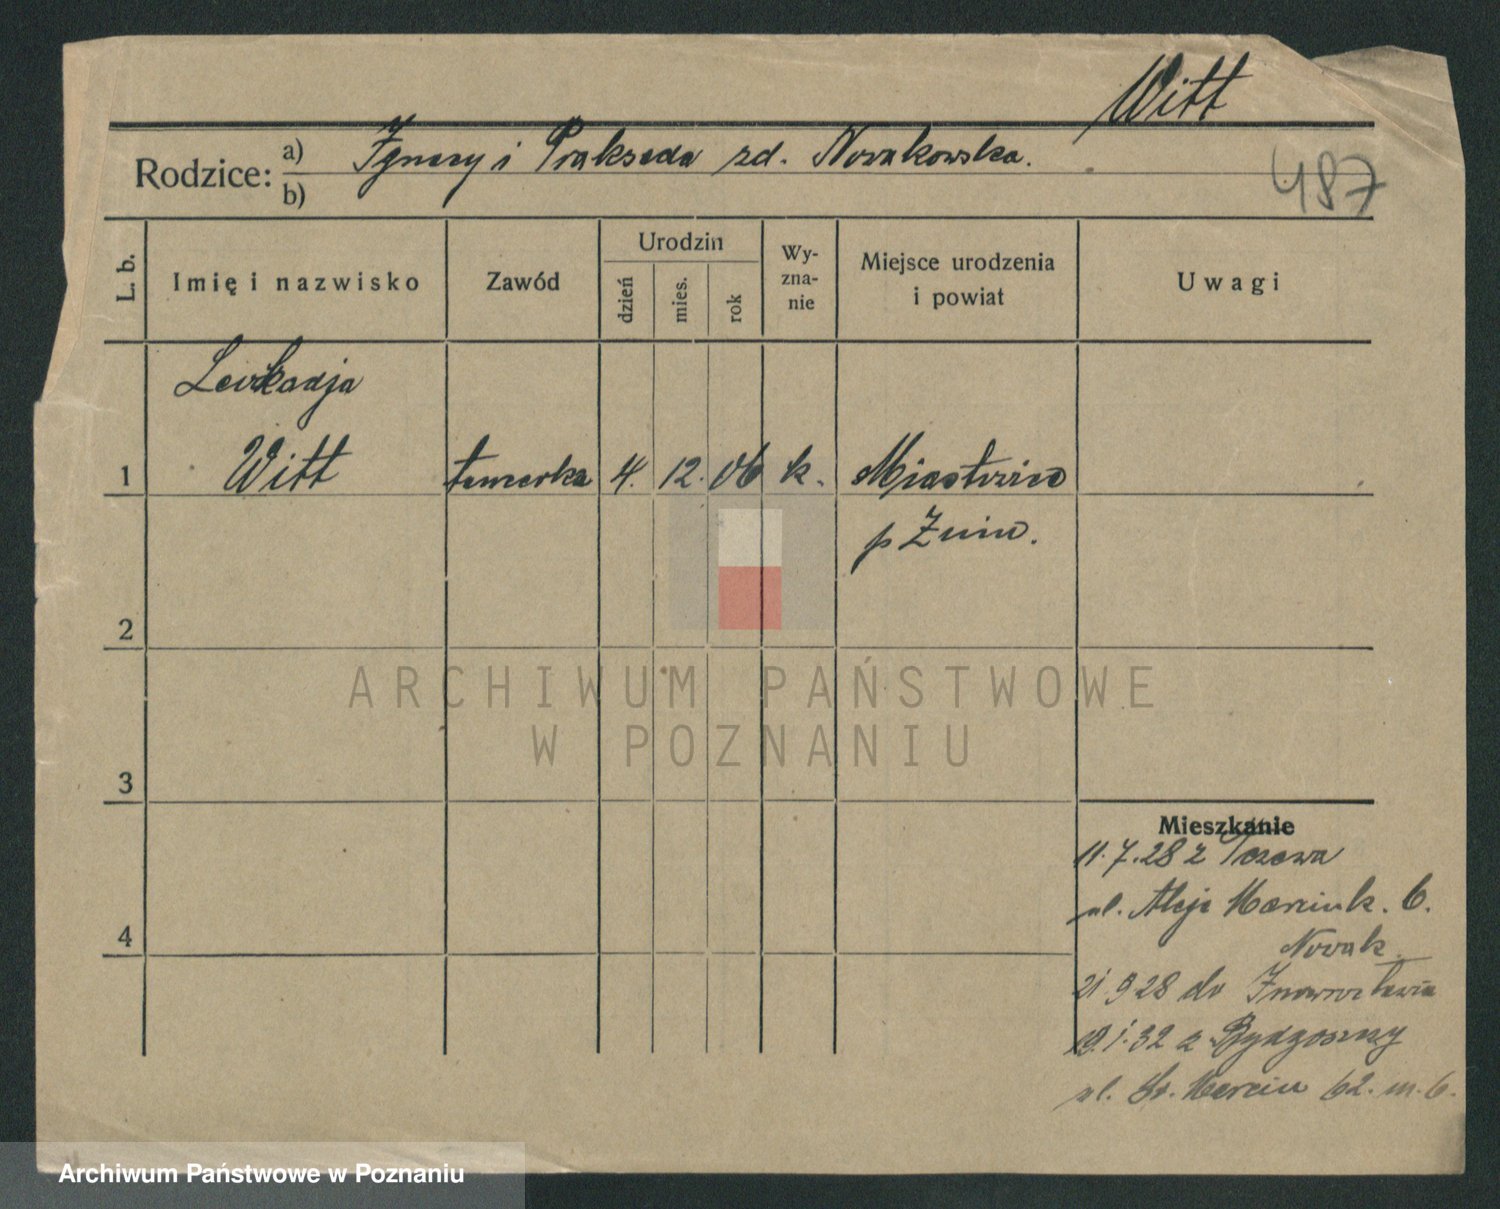 Witt
Rodzice: a) Ignacy i Prakseda zd. Nowakowska.
b)
487
L. b. Imię i nazwisko Zawód Urodzin dzień mies. rok Wyzna-nie Miejsce urodzenia i powiat Uwagi
Leokadja
1 Witt 4. 12. 06 k.
p Żnin.
2
ARCHIWUM PAŃSTWOWE
W POZNANIU
3
Mieszkanie
11.7.28 z Tczewa
ul. Aleje Marcink. 6.
Nowak
4
21.9.28 do Inowrocławia
19.1.32 z Bydgoszczy
ul. Św. Marcin 62. m. 6.
Archiwum Państwowe w Poznaniu